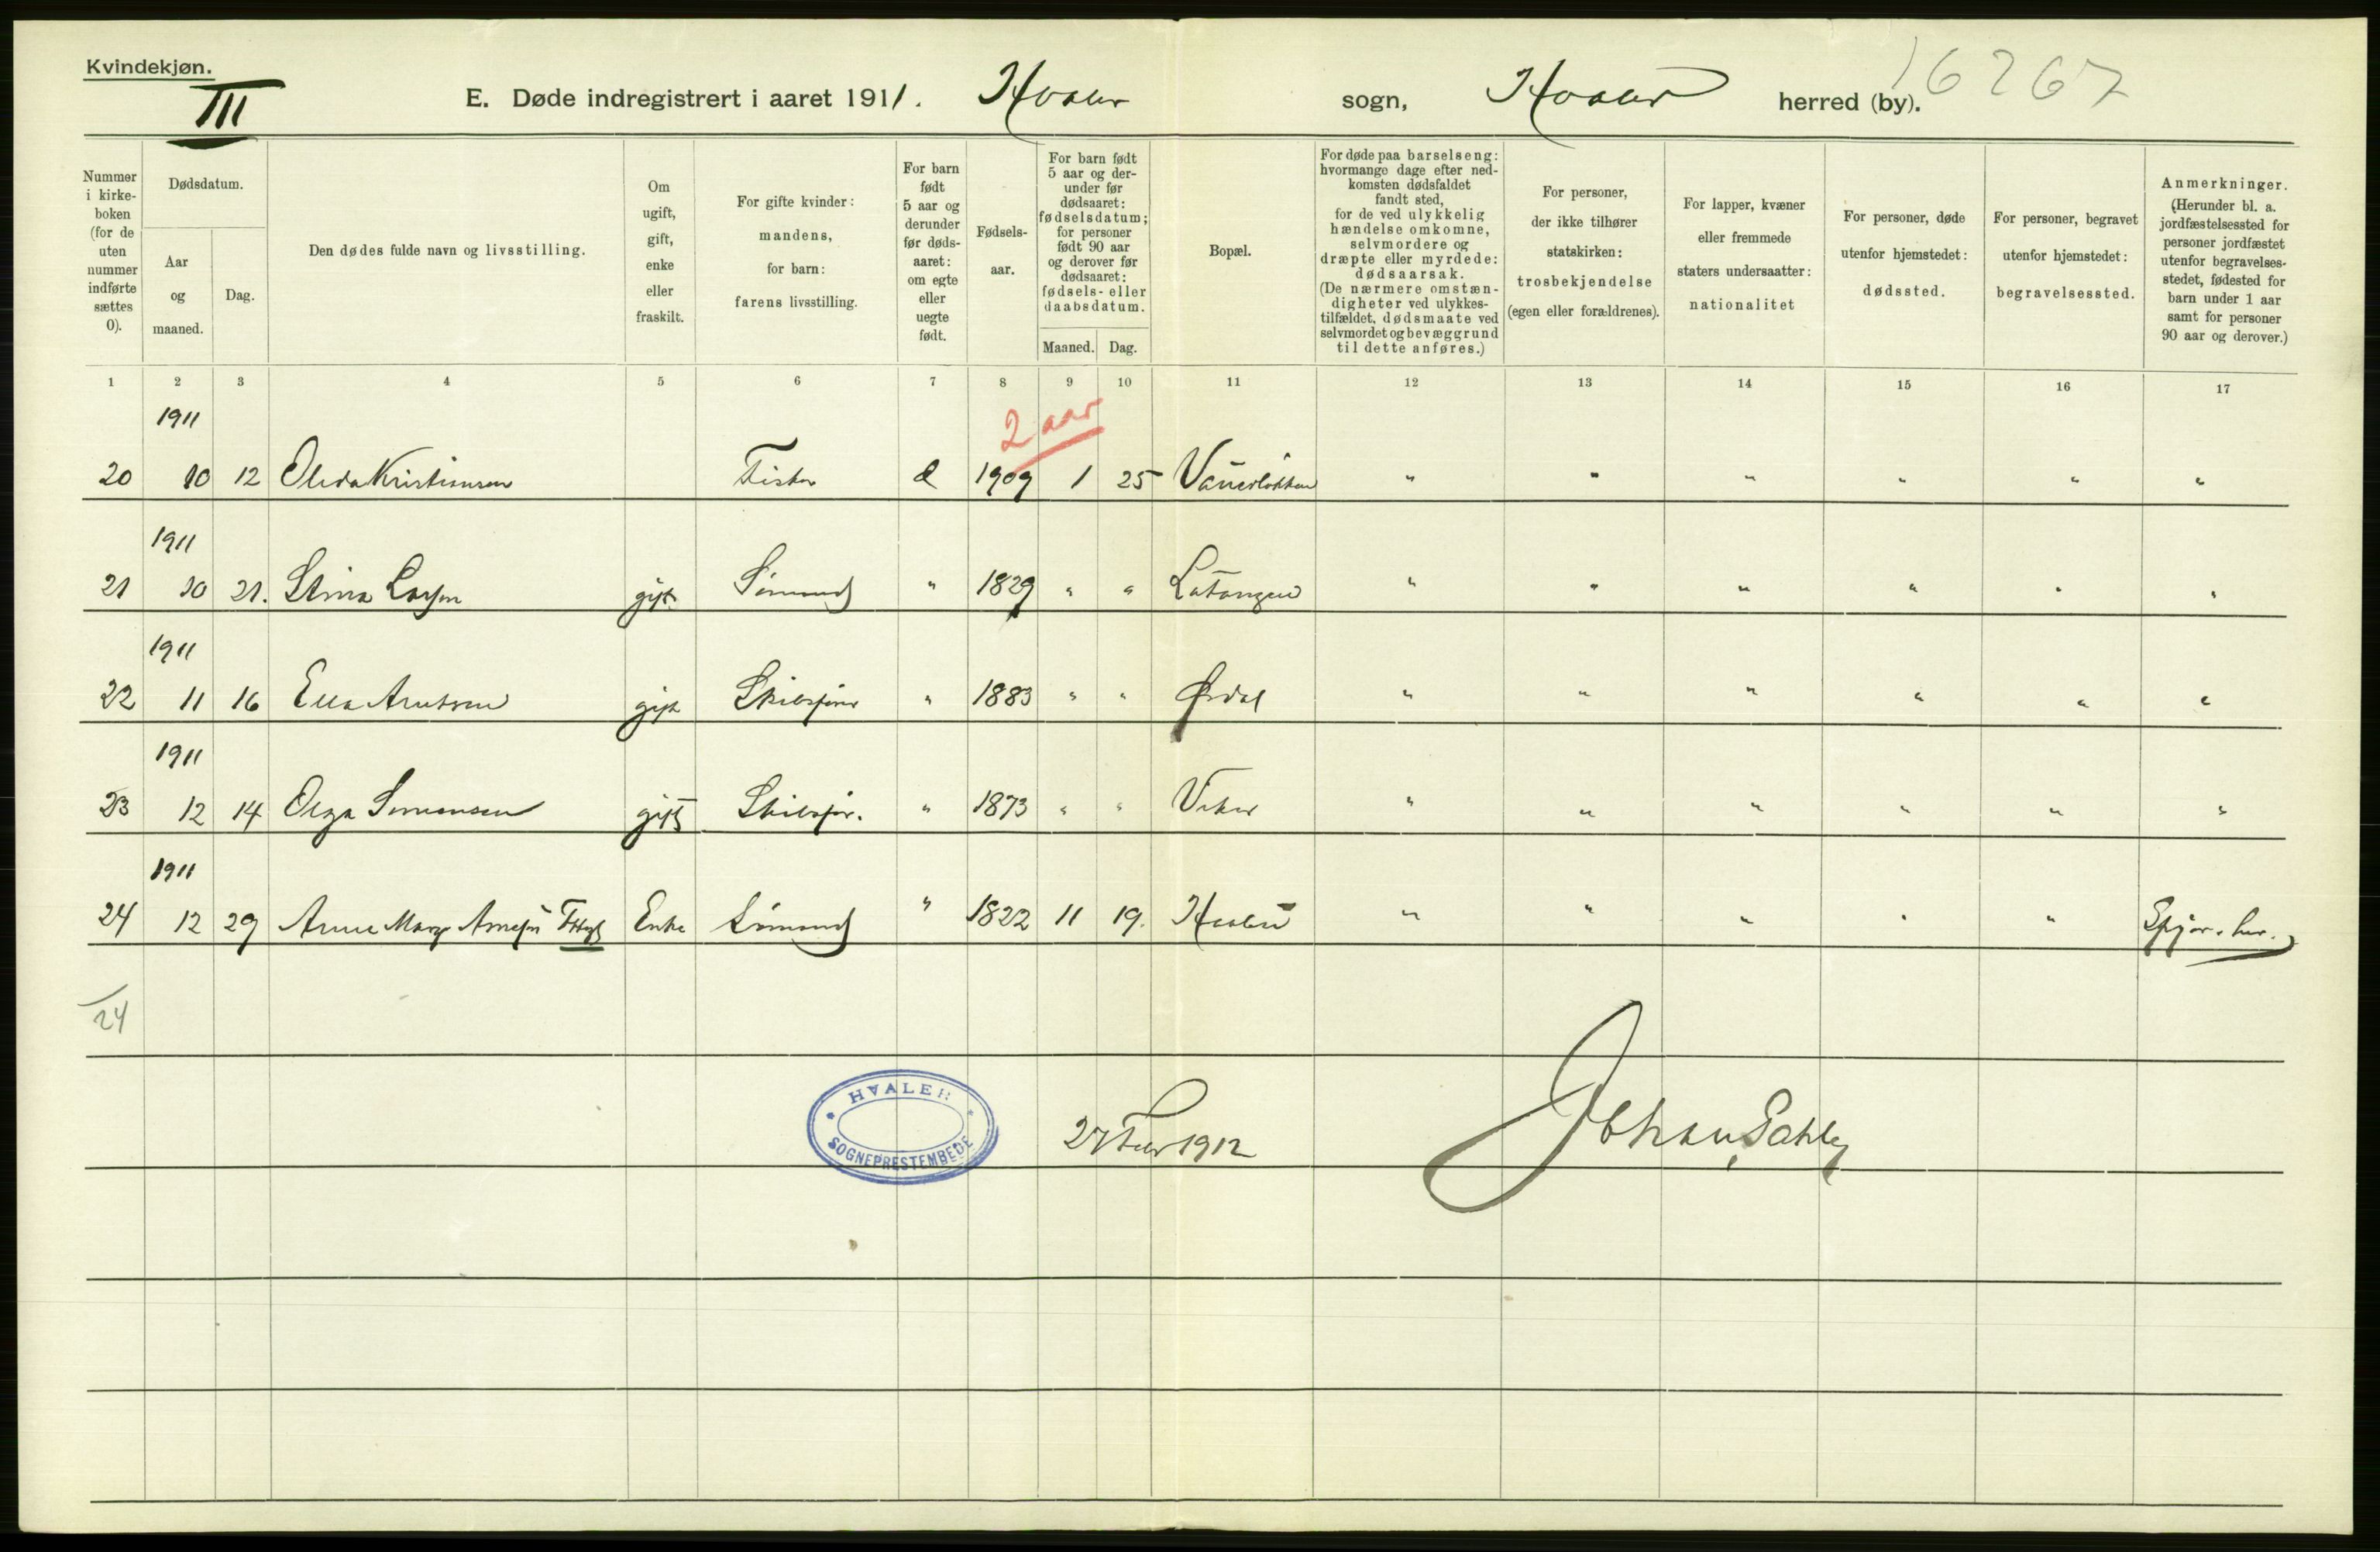 Kvindekjøn.
III
E. Døde indregistrert i aaret 1911. Hvaler sogn, Hvaler herred (by).
16267
Nummer i kirke-boken (for de uten nummer indførte sættes 0).
Dødsdatum.
Aar og maaned.
Dag.
Den dødes fulde navn og livsstilling.
Om ugift, gift, enke eller fraskilt.
For gifte kvinder: mandens, for barn: farens livsstilling.
For barn født 5 aar og derunder før døds-aaret: om egte eller uegte født.
Fødsels-aar.
For barn født 5 aar og der-under før dødsaaret: fødselsdatum; for personer født 90 aar og derover før dødsaaret: fødsels- eller daabsdatum.
Maaned. Dag.
Bopæl.
For døde paa barselseng: hvormange dage efter ned-komsten dødsfaldet fandt sted, for de ved ulykkelig hændelse omkomne, selvmordere og dræpte eller myrdede: dødsaarsak. (De nærmere omstæn-digheter ved ulykkes-tilfældet, dødsmaate ved selvmordet og bevæggrund til dette anføres.)
For personer, der ikke tilhører statskirken: trosbekjendelse (egen eller forældrenes).
For lapper, kvæner eller fremmede staters undersaatter: nationalitet
For personer, døde utenfor hjemstedet: dødssted.
For personer, begravet utenfor hjemstedet: begravelsessted.
Anmerkninger. (Herunder bl. a. jordfæstelsessted for personer jordfæstet utenfor begravelses-stedet, fødested for barn under 1 aar samt for personer 90 aar og derover.)
1 2 3 4 5 6 7 8 9 10 11 12 13 14 15 16 17
1911
2 aar
20 10 12 Olida Kristiansen Fisker 1909 1 25 " " " " " "
1911
21 10 21. Stina Larsen gift Sømand " 1829 " " " " " " " "
1911
22 11 16 Ella Arntsen gift " 1883 " " Ørdal " " " " " "
1911
23 12 14 Olga Simensen gift " 1873 " " Viker " " " " " "
1911
24 12 29 Anne Marg. Enke Sømand " 1822 11 19. Hvaler " " " " "
24
HVALER SOGNEPRESTEMBEDE
27 Febr 1912
Johan